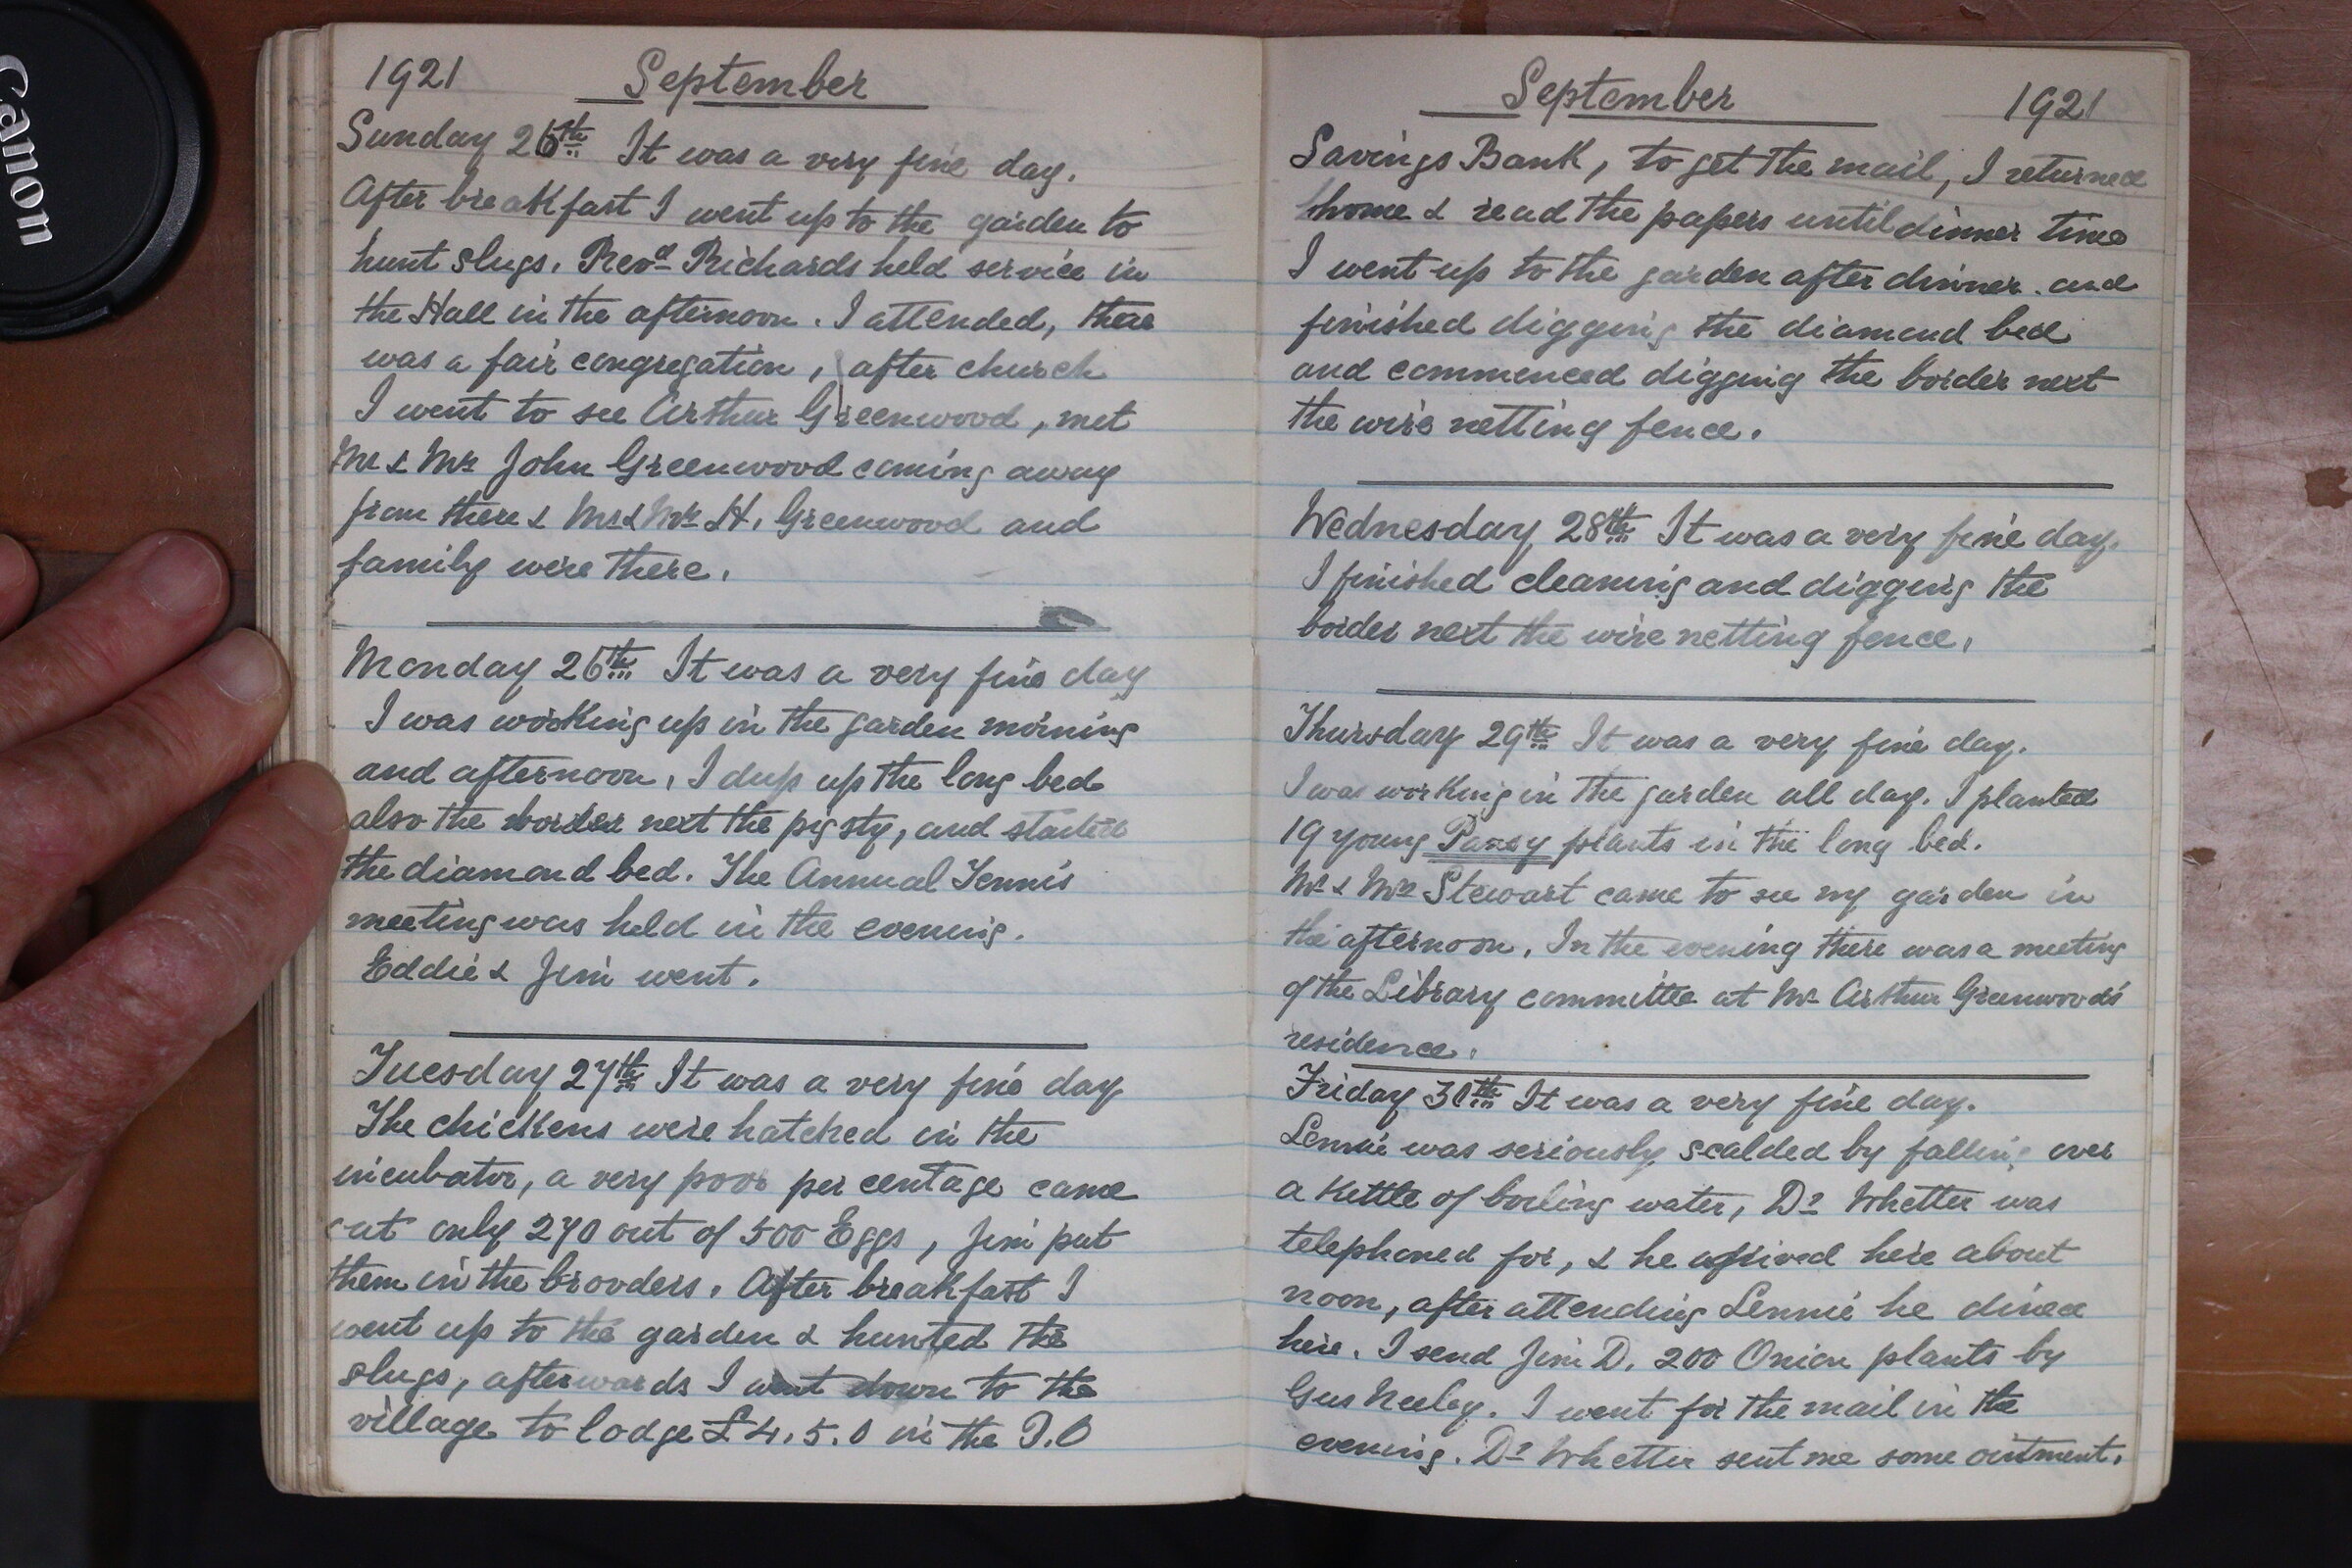 Canon
1921 September
Sunday 26th It was a very fine day.
After breakfast I went up to the garden to
hunt slugs. Revd Richards held service in
the Hall in the afternoon. I attended, there
was a fair congregation, after church
I went to see Arthur Greenwood, met
Mr & Mrs John Greenwood coming away
from there & Mr & Mrs H. Greenwood and
family were there.
Monday 26th It was a very fine day
I was working up in the garden morning
and afternoon, I dup up the long bed
also the border next the pigsty, and started
the diamond bed. The Annual Tennis
meeting was held in the evening.
Eddie & Jim went.
Tuesday 27th It was a very fine day
The chickens were hatched in the
incubator, a very poor per centage came
out only 270 out of 500 Eggs, Jim put
them in the brooders. After breakfast I
went up to the garden & hunted the
slugs, afterwards I went down to the
village to lodge £4.5.0 in the P.O
September 1921
Savings Bank, to get the mail, I returned
home & read the papers until dinner time
I went up to the garden after dinner and
finished digging the diamond bed
and commenced digging the border next
the wire netting fence.
Wednesday 28th It was a very fine day.
I finished cleaning and digging the
border next the wire netting fence.
Thursday 29th It was a very fine day.
I was working in the garden all day. I planted
19 young Pansy plants in the long bed.
Mr & Mrs Stewart came to see my garden in
the afternoon. In the evening there was a meeting
of the Library committee at Mr Arthur Greenwood's
residence.
Friday 30th It was a very fine day.
Lennie was seriously scalded by falling over
a kettle of boiling water, Dr Whetter was
telephoned for, & he arrived here about
noon, after attending Lennie he dined
here. I send Jim D. 200 Onion plants by
Gus Neeley. I went for the mail in the
evening. Dr Whetter sent me some ointment.